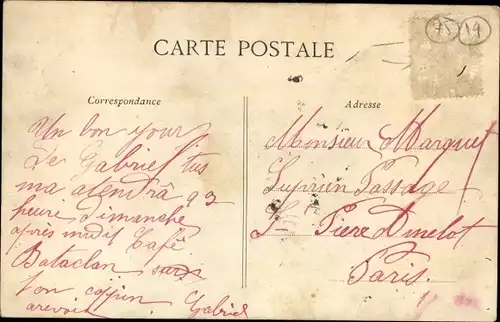 75 19
CARTE POSTALE
Correspondance
Un bon jour
De Gabriel tus
ma atendrâ 93
heure Dimanche
après midit Café
Bataclan
ton copjin Gabriel
arevoir
Adresse
Monsieur Marquet
Passage
St Piere Amelot
Paris